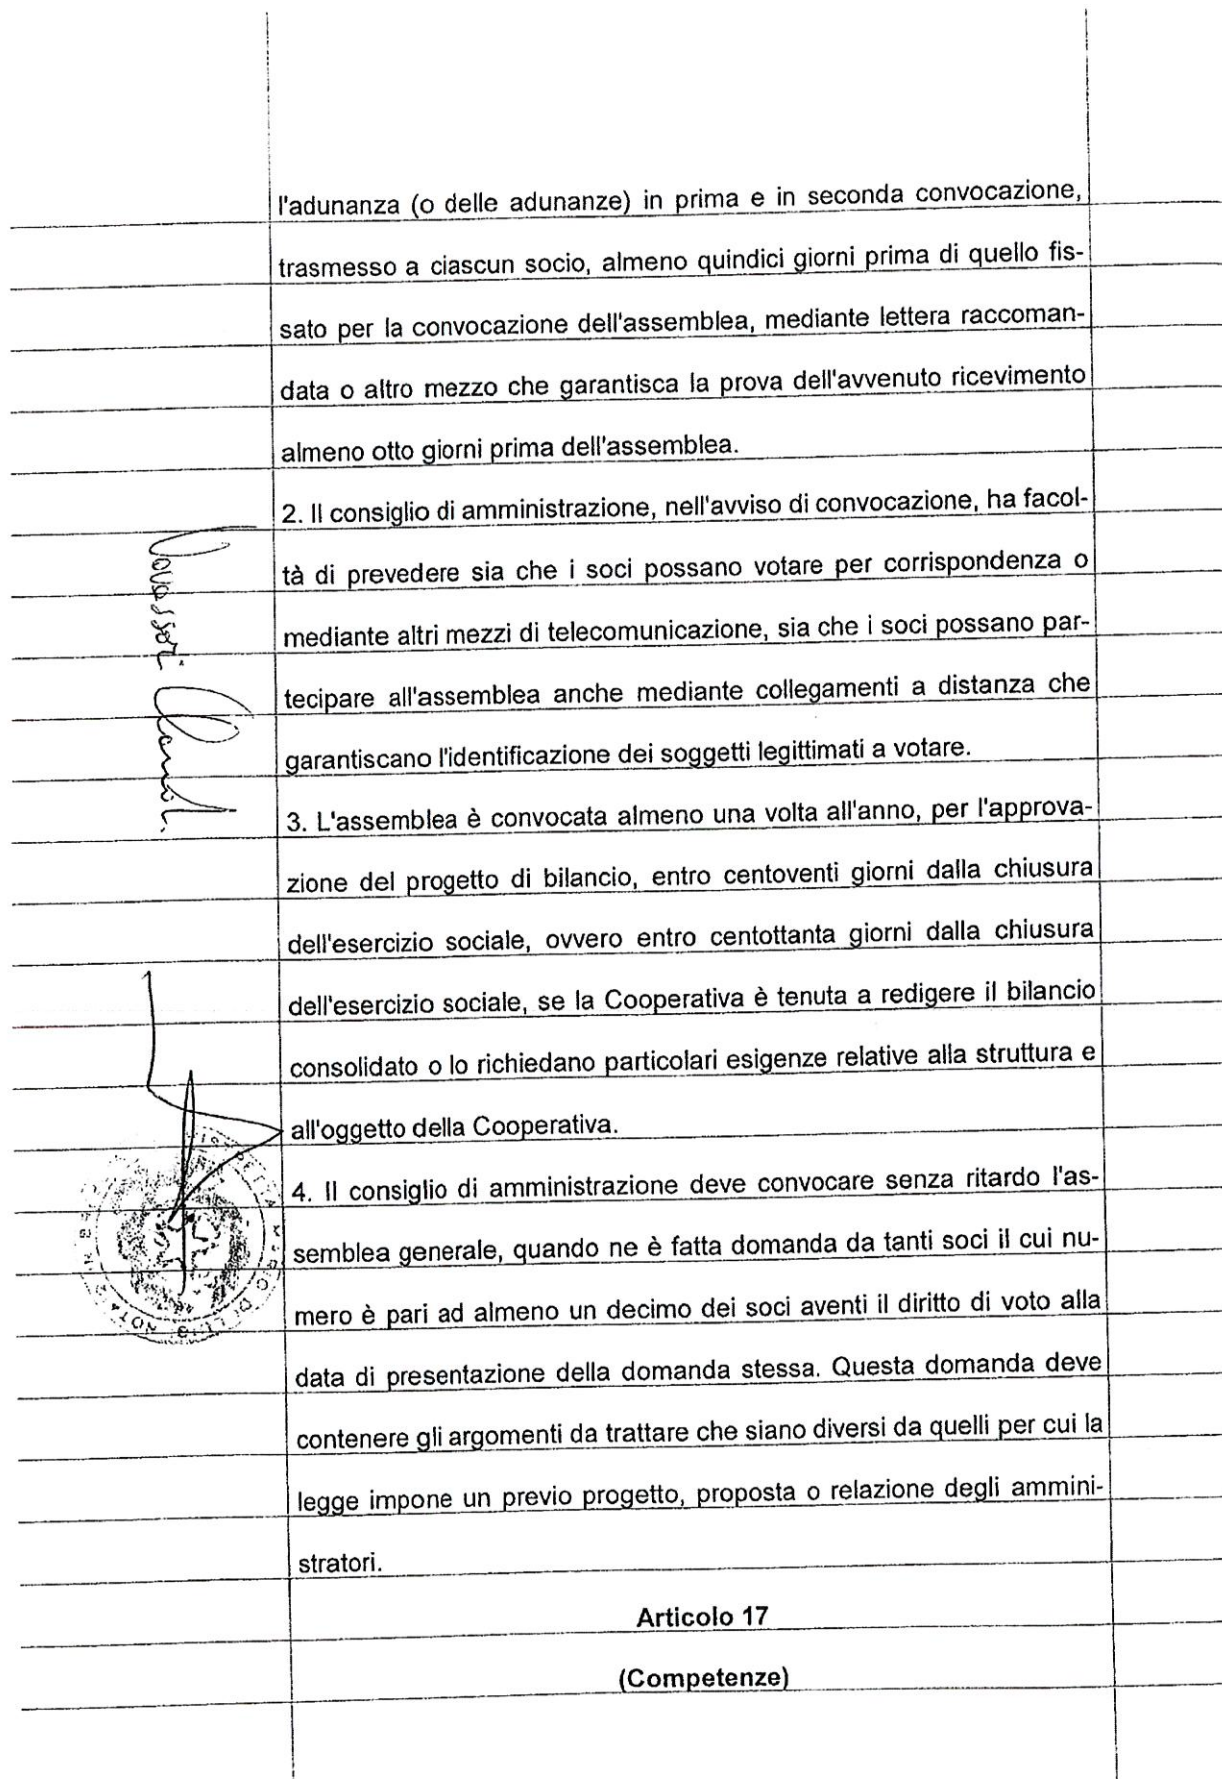 l'adunanza (o delle adunanze) in prima e in seconda convocazione,
trasmesso a ciascun socio, almeno quindici giorni prima di quello fis-
sato per la convocazione dell'assemblea, mediante lettera raccoman-
data o altro mezzo che garantisca la prova dell'avvenuto ricevimento
almeno otto giorni prima dell'assemblea.
2. Il consiglio di amministrazione, nell'avviso di convocazione, ha facol-
tà di prevedere sia che i soci possano votare per corrispondenza o
mediante altri mezzi di telecomunicazione, sia che i soci possano par-
tecipare all'assemblea anche mediante collegamenti a distanza che
garantiscano l'identificazione dei soggetti legittimati a votare.
3. L'assemblea è convocata almeno una volta all'anno, per l'approva-
zione del progetto di bilancio, entro centoventi giorni dalla chiusura
dell'esercizio sociale, ovvero entro centottanta giorni dalla chiusura
dell'esercizio sociale, se la Cooperativa è tenuta a redigere il bilancio
consolidato o lo richiedano particolari esigenze relative alla struttura e
all'oggetto della Cooperativa.
4. Il consiglio di amministrazione deve convocare senza ritardo l'as-
semblea generale, quando ne è fatta domanda da tanti soci il cui nu-
mero è pari ad almeno un decimo dei soci aventi il diritto di voto alla
data di presentazione della domanda stessa. Questa domanda deve
contenere gli argomenti da trattare che siano diversi da quelli per cui la
legge impone un previo progetto, proposta o relazione degli ammini-
stratori.
Articolo 17
(Competenze)